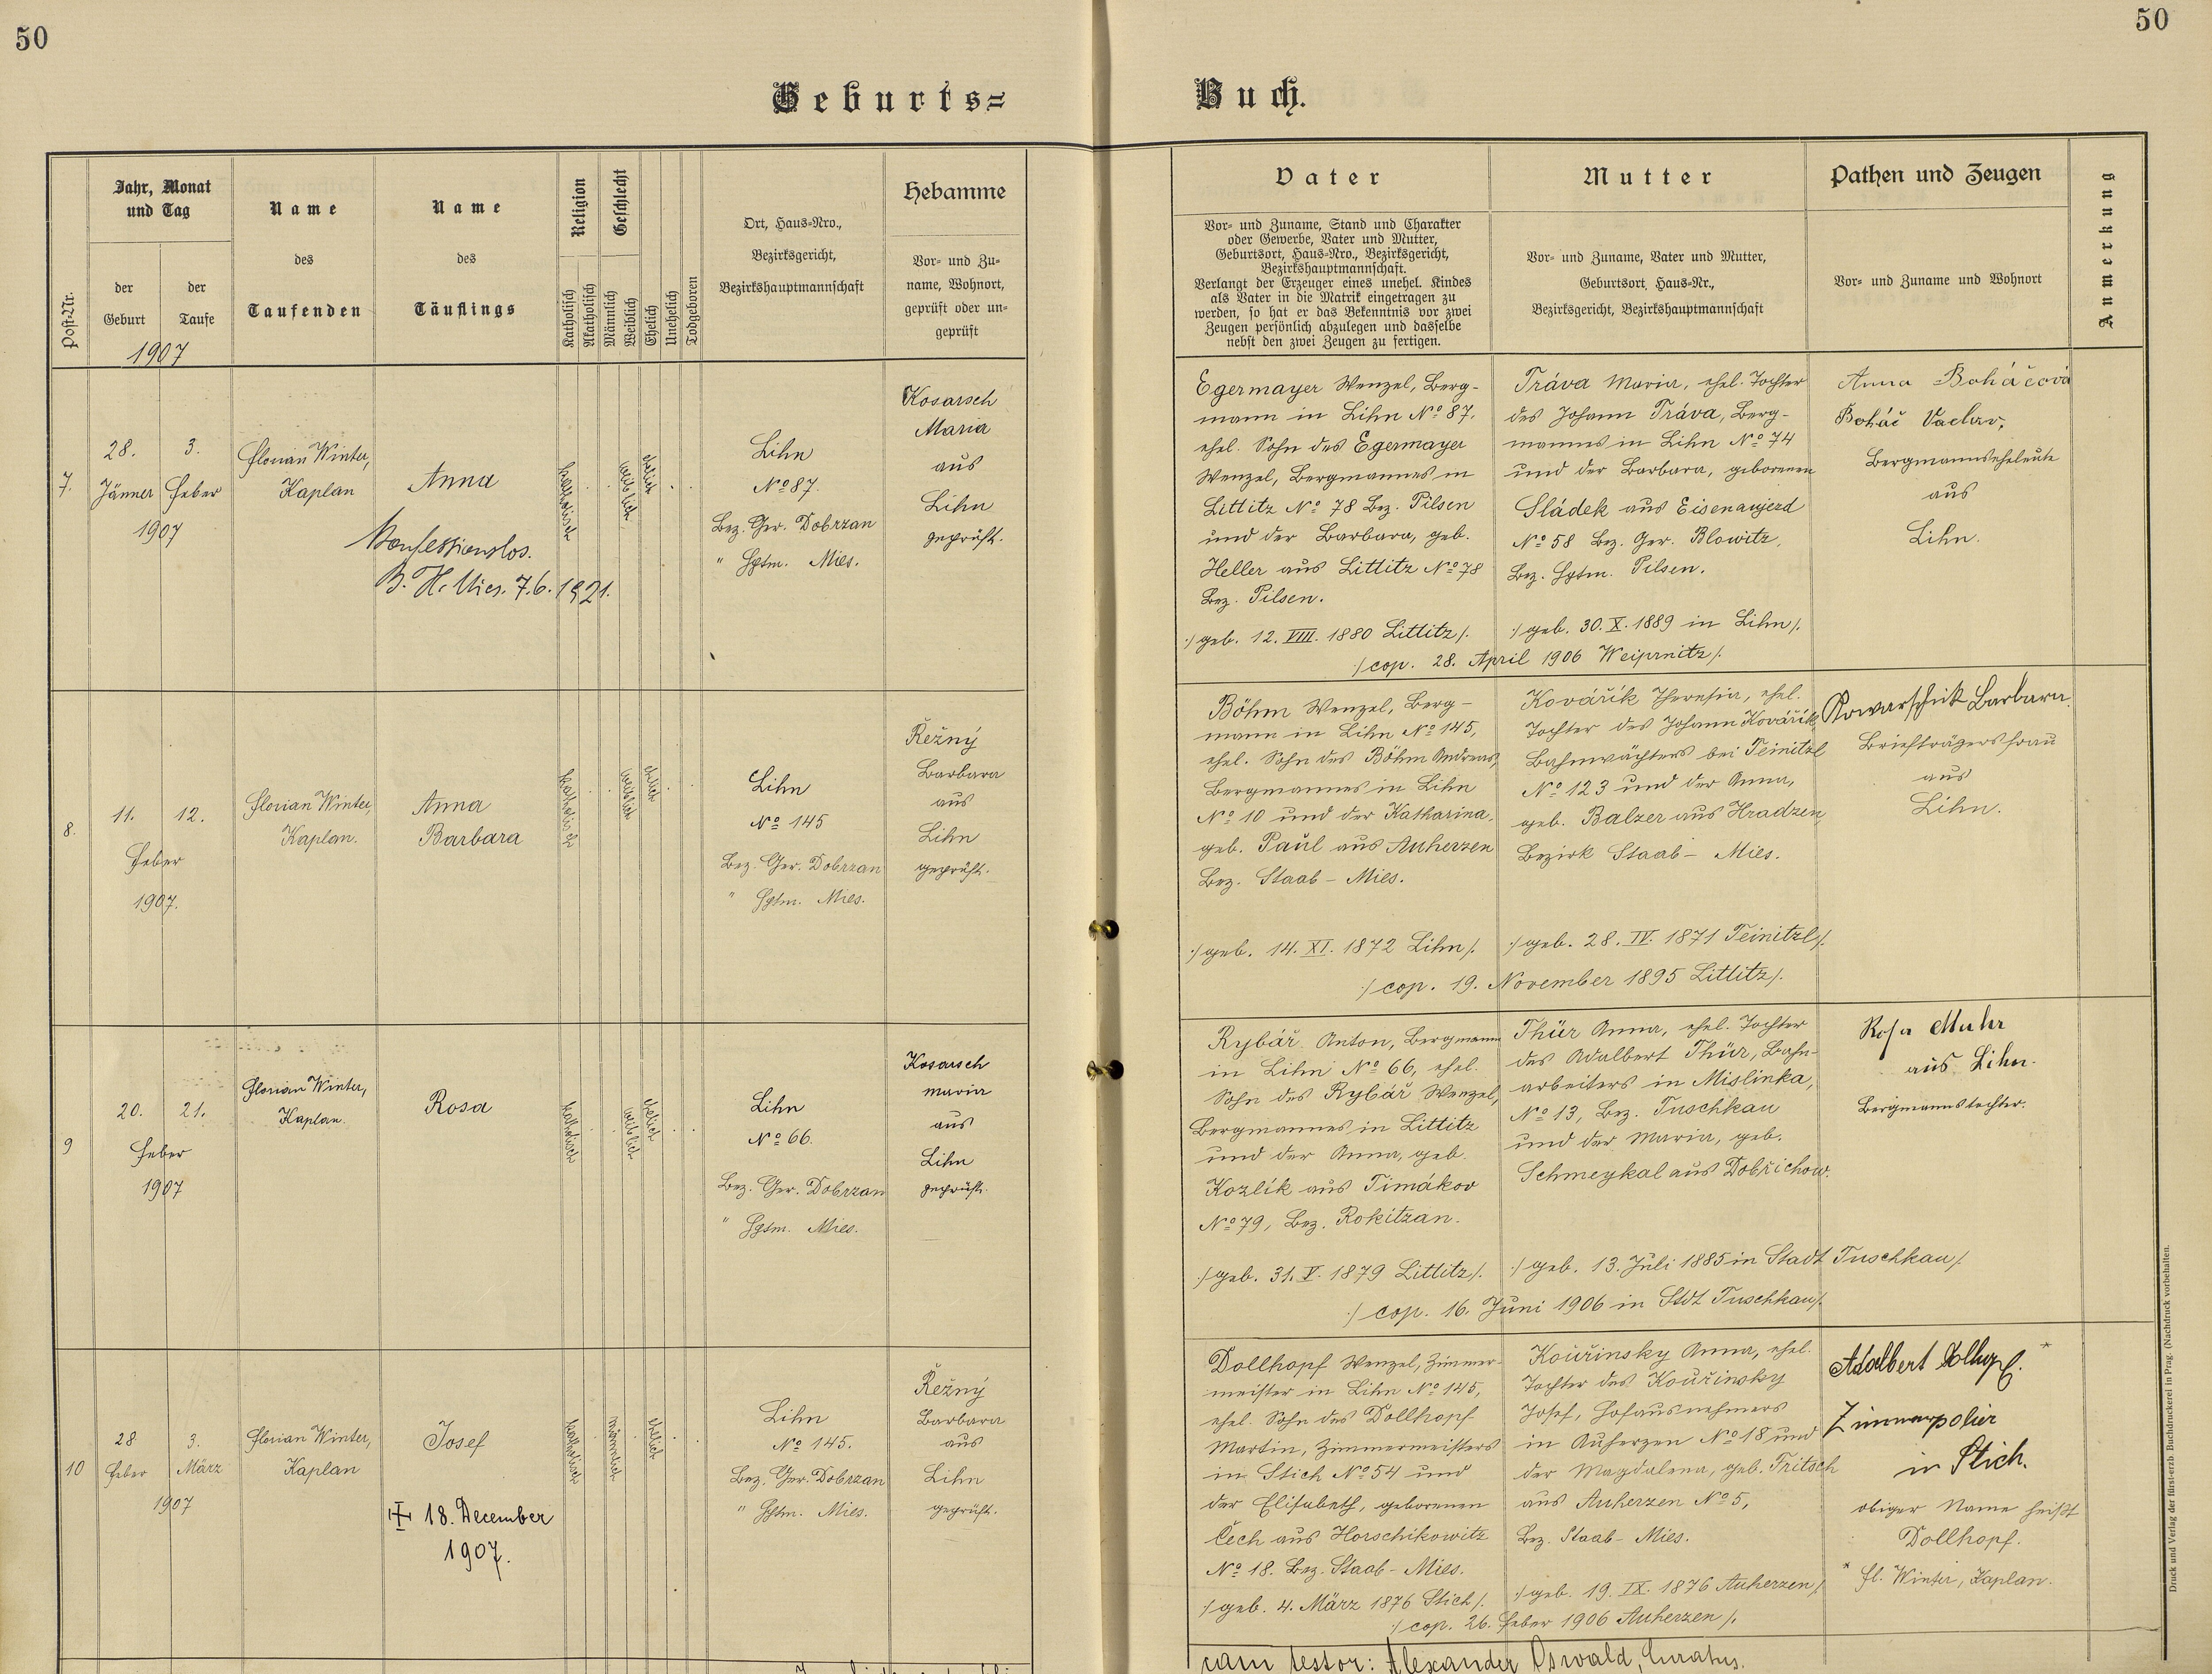 50
50
Geburts=
Buch.
Post-Nr.
Jahr, Monat
und Tag
der
Geburt
der
Taufe
1907
Name
des
Taufenden
Name
des
Täuflings
Religion
Katholisch
Akatholisch
Geschlecht
Männlich
Weiblich
Ehelich
Unehelich
Todgeboren
Ort, Haus=Nro.,
Bezirksgericht,
Bezirkshauptmannschaft
Hebamme
Vor= und Zu=
name, Wohnort,
geprüft oder un=
geprüft
Vater
Vor= und Zuname, Stand und Charakter
oder Gewerbe, Vater und Mutter,
Geburtsort, Haus=Nro., Bezirksgericht,
Bezirkshauptmannschaft.
Verlangt der Erzeuger eines unehel. Kindes
als Vater in die Matrik eingetragen zu
werden, so hat er das Bekenntnis vor zwei
Zeugen persönlich abzulegen und dasselbe
nebst den zwei Zeugen zu fertigen.
Mutter
Vor= und Zuname, Vater und Mutter,
Geburtsort, Haus=Nr.,
Bezirksgericht, Bezirkshauptmannschaft
Pathen und Zeugen
Vor= und Zuname und Wohnort
Anmerkung
7.
28.
Jänner
3.
Feber
1907
Florian Winter,
Kaplan
Anna
Konfessionslos.
B. H. Mies. 7.6.1921.
katholisch
weiblich
ehelich
Lihn
No 87.
Bez. Ger. Dobrzan
" Hptm. Mies.
Kosarsch
Maria
aus
Lihn
geprüft.
Egermayer Wenzel, Berg-
mann in Lihn No 87.
ehel. Sohn des Egermayer
Wenzel, Bergmannes in
Littitz No 78 Bez. Pilsen
und der Barbara, geb.
Heller aus Littitz No 78
Bez. Pilsen.
:/ geb. 12. VIII. 1880 Littitz /.
Tráva Maria, ehel. Tochter
des Johann Tráva, Berg-
mannes in Lihn No 74
und der Barbara, geborenen
Sládek aus Eisenaujezd
No 58 Bez. Ger. Blowitz,
Bez. Hptm. Pilsen.
:/ geb. 30. X. 1889 in Lihn /.
:/ cop. 28. April 1906 Weiprnitz /.
Anna Boháčová
Boháč Vaclav,
Bergmannseheleute
aus
Lihn.
8.
11.
12.
Feber
1907.
Florian Winter,
Kaplan.
Anna
Barbara
katholisch
weiblich
ehelich
Lihn
No 145
Bez. Ger. Dobrzan
" Hptm. Mies.
Řežný
Barbara
aus
Lihn
geprüft.
Böhm Wenzel, Berg-
mann in Lihn No 145,
ehel. Sohn des Böhm Andreas,
Bergmannes in Lihn
No 10 und der Katharina,
geb. Paul aus Auherzen
Bez. Staab - Mies.
:/ geb. 14. XI. 1872 Lihn /.
Kovářík Theresia, ehel.
Tochter des Johann Kovářík,
Bahnwächters bei Teinitzl
No 123 und der Anna,
geb. Balzer aus Hradzen
Bezirk Staab - Mies.
:/ geb. 28. IV. 1871 Teinitzl /.
:/ cop. 19. November 1895 Littitz /.
Kowarschik Barbara.
Briefträgersfrau
aus
Lihn.
9
20.
21.
Feber
1907
Florian Winter,
Kaplan.
Rosa
katholisch
weiblich
ehelich
Lihn
No 66.
Bez. Ger. Dobrzan
" Hptm. Mies.
Kosarsch
Maria
aus
Lihn
geprüft.
Rybář Anton, Bergmann
in Lihn No 66, ehel.
Sohn des Rybář Wenzel,
Bergmannes in Littitz
und der Anna, geb.
Kozlík aus Timákov
No 79, Bez. Rokitzan.
:/ geb. 31. V. 1879 Littitz /.
Thür Anna, ehel. Tochter
des Adalbert Thür, Bahn-
arbeiters in Mislinka,
No 13, Bez. Tuschkau
und der Maria, geb.
Schmeykal aus Dobřichow.
:/ geb. 13. Juli 1885 in Stadt Tuschkau /.
:/ cop. 16. Juni 1906 in Stdt Tuschkau /.
Rosa Muhr
aus Lihn.
Bergmannstochter.
10
28
Feber
3.
März
1907
Florian Winter,
Kaplan
Josef
18. December
1907.
katholisch
männlich
ehelich
Lihn
No 145.
Bez. Ger. Dobrzan
" Hptm. Mies.
Řežný
Barbara
aus
Lihn
geprüft.
Dollhopf Wenzel, Zimmer-
meister in Lihn No 145,
ehel. Sohn des Dollhopf
Martin, Zimmermeisters
in Stich No 54 und
der Elisabeth, geborenen
Čech aus Horschikowitz
No 18. Bez. Staab - Mies.
:/ geb. 4. März 1876 Stich /.
Kouřinsky Anna, ehel.
Tochter des Kouřinsky
Josef, Hofausnehmers
in Auherzen No 18 und
der Magdalena, geb. Tritsch
aus Auherzen No 5,
Bez. Staab - Mies.
:/ geb. 19. IX. 1876 Auherzen /.
:/ cop. 26. Feber 1906 Auherzen /.
Adalbert Dollhopf. *
Zimmerpolier
in Stich.
obiger Name heißt
Dollhopf.
* Fl. Winter, Kaplan.
cam testor: Alexander Oswald, Curatus.
Druck und Verlag der fürst-erzb. Buchdruckerei in Prag. (Nachdruck vorbehalten.